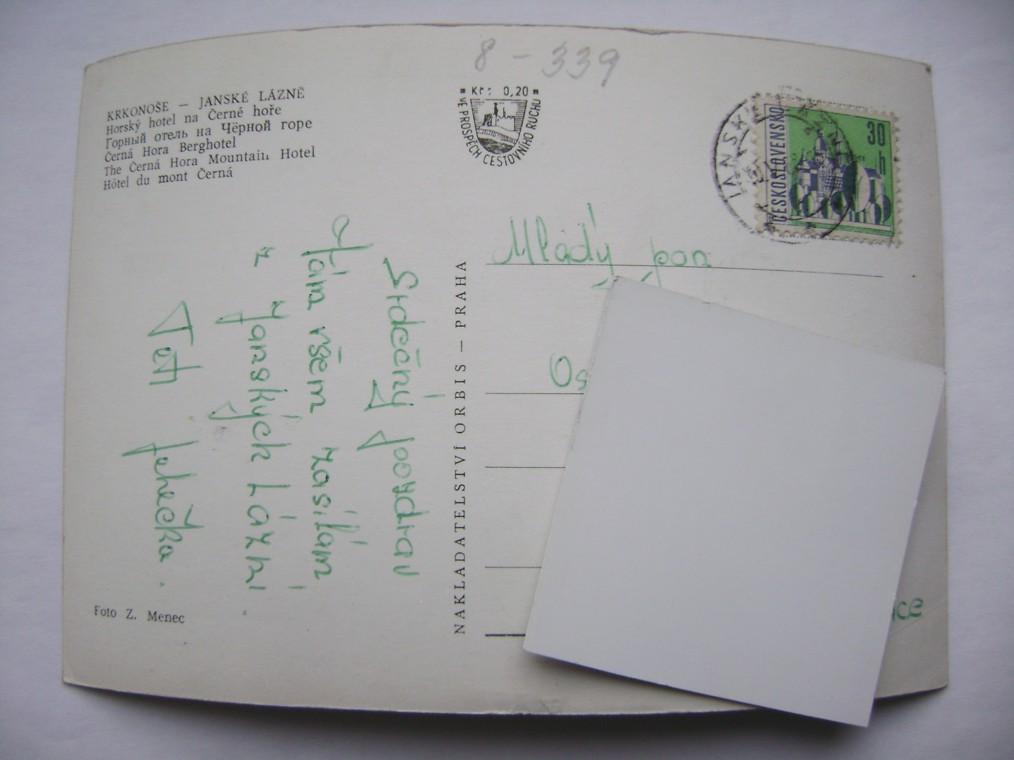 8 - 339
KRKONOŠE — JANSKÉ LÁZNĚ
Horský hotel na Černé hoře
Горный отель на Чёрной горе
Černá Hora Berghotel
The Černá Hora Mountain Hotel
Hôtel du mont Černá
Kčs 0,20
VE PROSPĚCH CESTOVNÍHO RUCHU
ČESKOSLOVENSKO
30
h
JANSKÉ
Srdečný pozdrav
Vám všem zasílám
z Janských Lázní
Teti
Foto Z. Menec
NAKLADATELSTVÍ ORBIS — PRAHA
Mladý pan
Os
ice